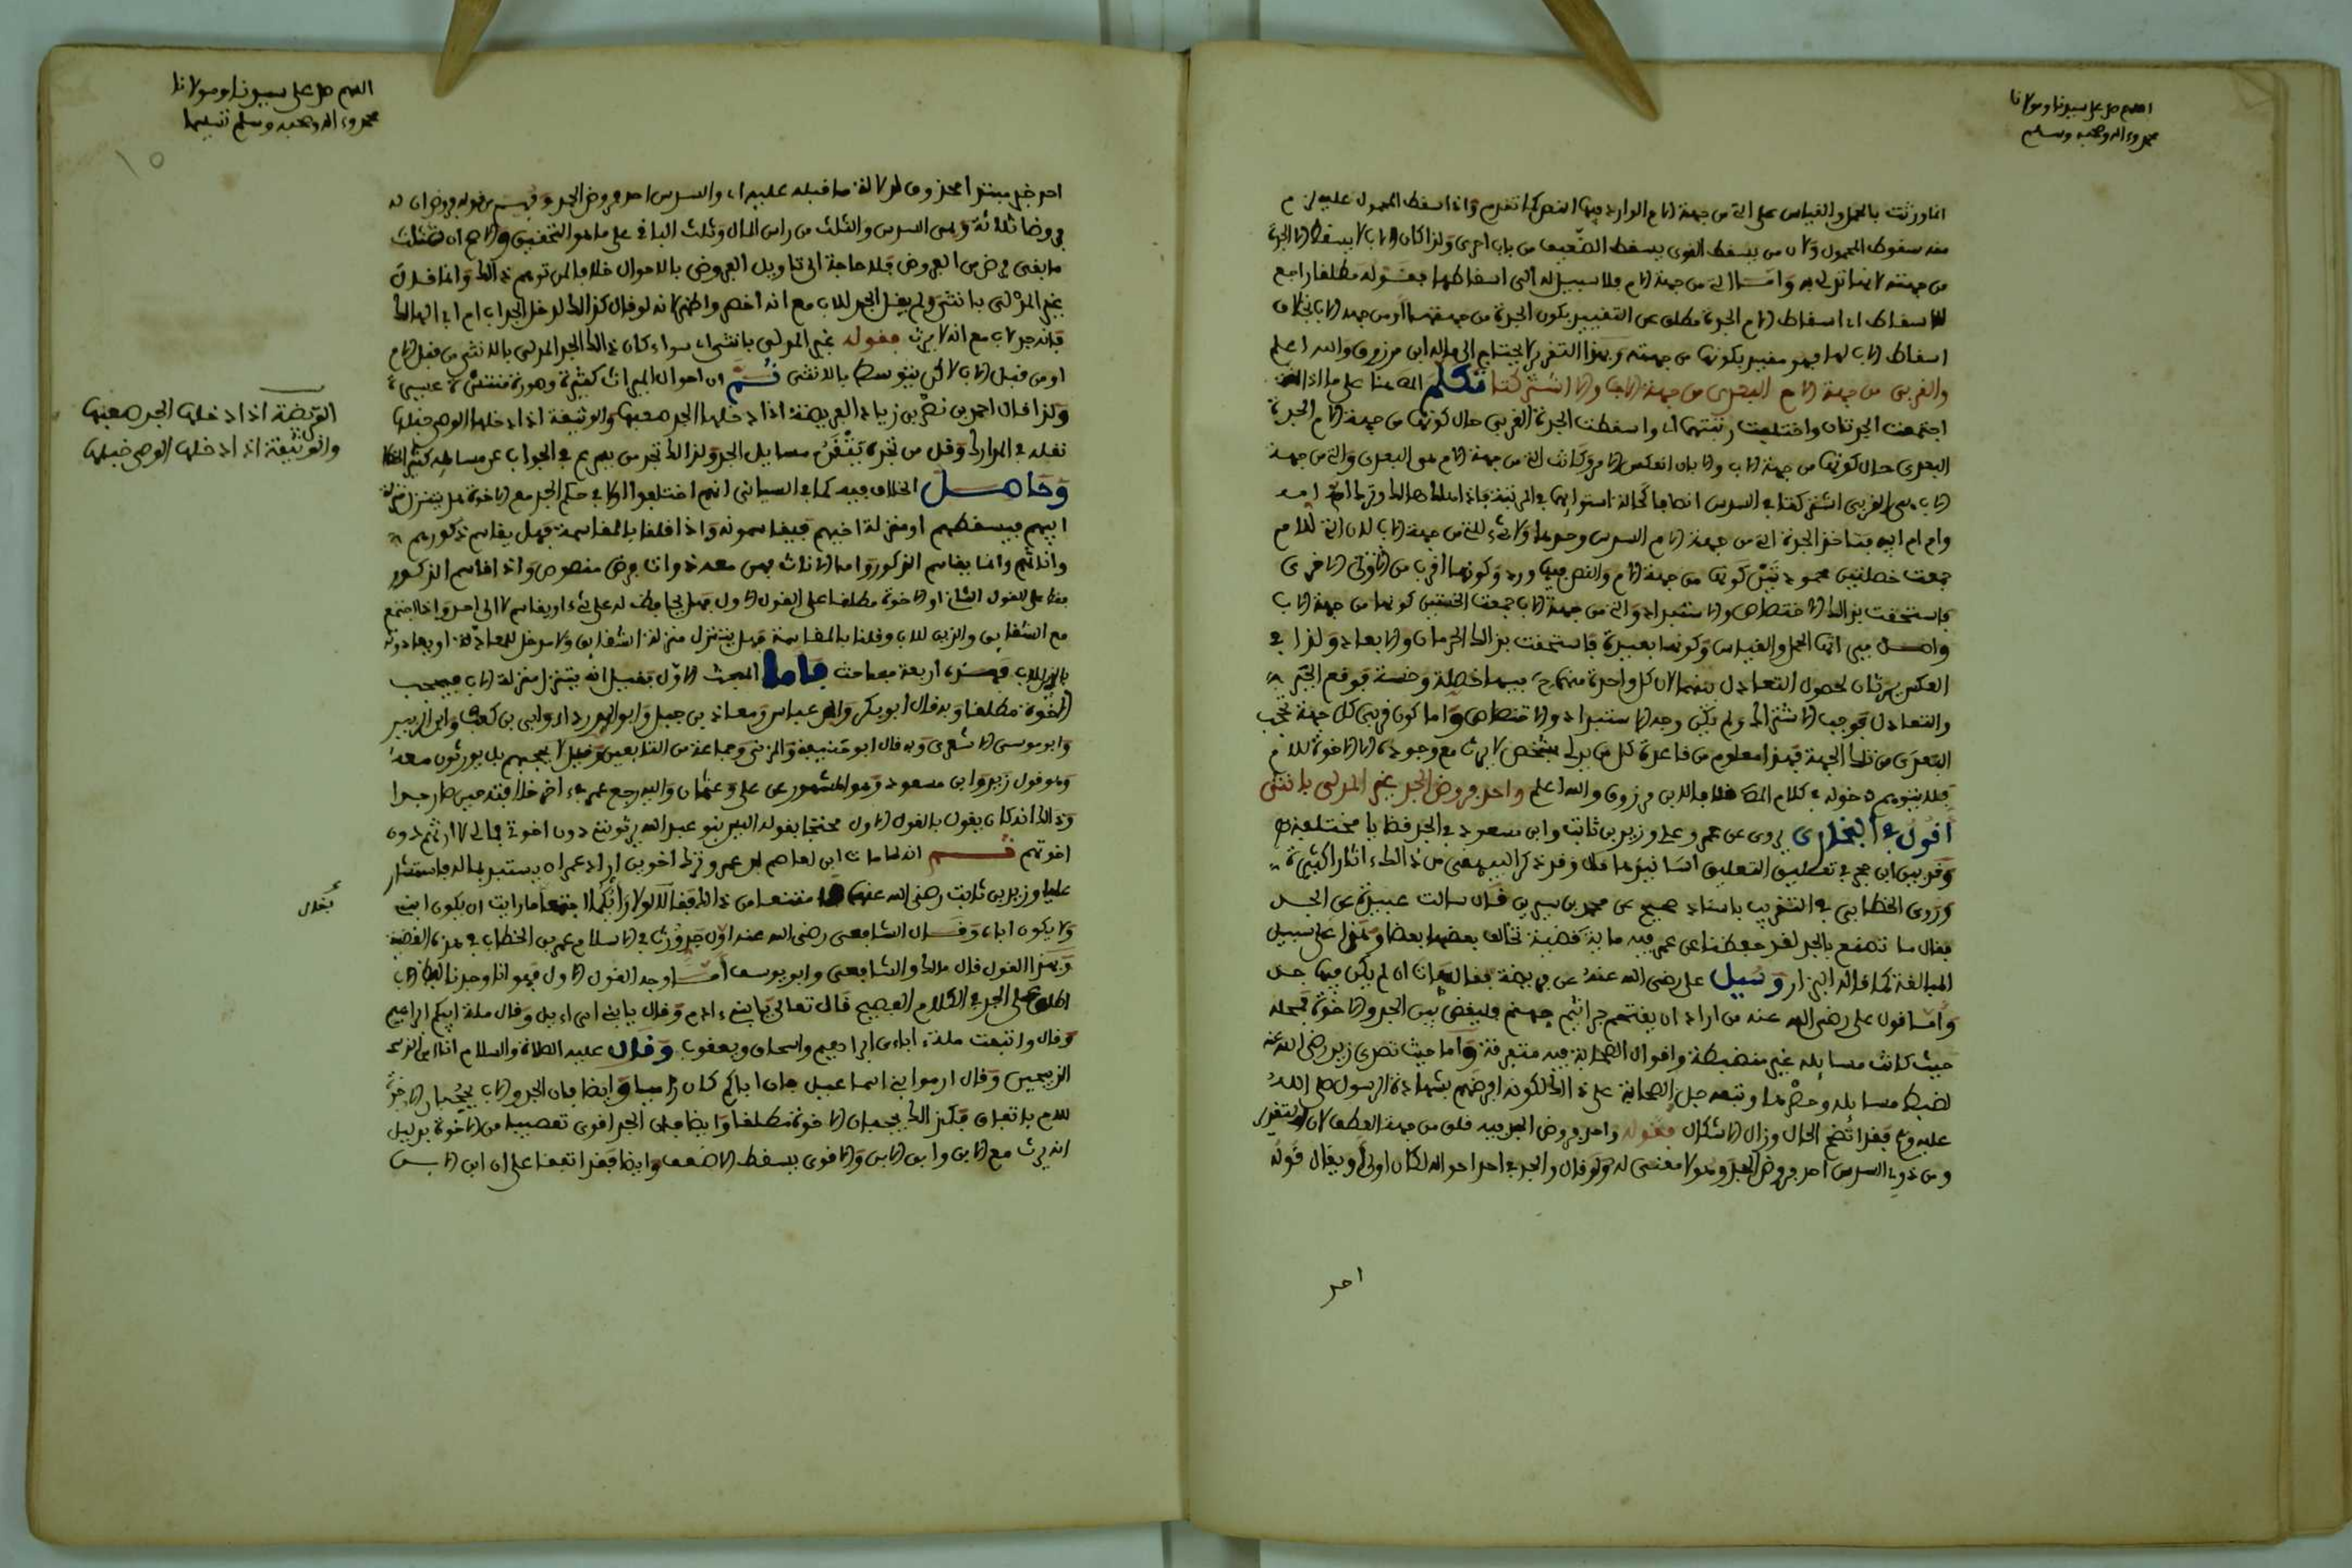 اللهم صل على سيدنا ومولانا
محمد وءاله وصحبه وسلم
انما ورثت بالحمل والقياس على التي من جهة الام الوارد فيها النص كما تقدم واذا سقط المحمول عليه لزم
منه سقوط المحمول ولان من يسقط القوى يسقط الضعيف من باب احرى ولذا كان الاب لا يسقط الا الجدة
من جهته لانها تدلى به واما التي من جهة الام فلا سبيل له الى اسقاطها فقوله مطلقا راجع
للاسقاط اي اسقاط الام الجدة مطلق عن التقييد بكون الجدة من جهتها او من جهة الاب بخلاف
اسقاط الاب لها فهو مقيد بكونها من جهته وبهذا التقرير لا يحتاج الى ما لابن مرزوق والله اعلم
والقربى من جهة الام البعدى من جهة الاب والا اشتركتا تكلم المص هنا على ما اذا
اجتمعت الجدتان واختلفت رتبتهما اي واسقطت الجدة القربى حال كونها من جهة الام الجدة
البعدى حال كونها من جهة الاب والا بان انعكس الامر وكانت التي من جهة الام هي البعدى والتي من جهة
الاب هي القربى اشتركتا في السدس انصافا كحالة استوايهما في المرتبة فاذا هلك هالك وترك ام ام امه
وام ام ابيه فتاخذ الجدة التي من جهة الام السدس وحدها ولا شيء للتي من جهة الاب لان التي للام
جمعت خصلتين محمودتين كونها من جهة الام والنص فيها ورد وكونها اقرب من الاخرى
فاستحقت بذلك الاختصاص والاستبداد والتي من جهة الاب جمعت الخستين كونها من جهة الاب
واصل ميراثها الحمل والقياس وكونها بعيدة فاستحقت بذلك الحرمان والابعاد ولذا في
العكس يرثان لحصول التعادل بينهما لان كل واحدة منهما فيها خصلة وخسة فوقع الجبر
والتعادل فوجب الاشتراك ولم يكن وجه الاستبداد والاختصاص واما كون قربى كل جهة تحجب
البعدى من تلك الجهة فهذا معلوم من قاعدة كل من يدلى بشخص لا يرث مع وجوده الا الاخوة للام
فلا يتوهم دخوله في كلام المص خلافا لابن مرزوق والله اعلم واحد فروض الجد غير المدلى بانثى
اقول في البخارى يروى عن عمر وعلي وزيد بن ثابت وابن مسعود في الجد قضايا مختلفة
وقد بين ابن حجر في تعليق التعليق اسانيدها قال وقد ذكر البيهقى من ذلك ءاثارا كثيرة
وروى الخطابى في الغريب باسناد صحيح عن محمد بن سيرين قال سالت عبيدة عن الجد
فقال ما تصنع بالجد لقد حفظنا عن عمر فيه ماية قضية تخالف بعضها بعضا وهذا على سبيل
المبالغة كما قاله البزار وسيل علي رضي الله عنه عن فريضة فقال هات ان لم يكن فيها جد
واما قول علي رضي الله عنه من اراد ان يقتحم جراثيم جهنم فليقض بين الجد والاخوة فمحله
حيث كانت مسائله غير منضبطة واقوال الصحابة فيه متفرقة واما حيث تصدى زيد رضي الله عنه
لضبط مسائله وحصرها وتبعه جل الصحابة على ذلك لكونه افرضهم بشهادة الرسول صلى الله
عليه وسلم فقد اتضح الحال وزال الاشكال فقوله واحد فروض الجد فيه قلق من جهة العطف لان التقدير
ومن ذوي السدس احد فروض الجد وهو لا معنى له ولو قال والجد في احد احواله لكان اولى ويقال قوله
احد
اللهم صل على سيدنا ومولانا
محمد وءاله وصحبه وسلم تسليما
١٥
احد خبر مبتدا محذوف لدلالة ما قبله عليه اي والسدس احد فروض الجد وفهم من قوله فروض ان له
فروضا ثلاثة وهي السدس والثلث من راس المال وثلث الباقي على ما هو التحقيق
ما بقى فرض من الفروض فلا حاجة الى تاويل الفروض بالاحوال خلافا لمن توهم ذلك وانما قال
غير المدلى بانثى ولم يقل الجد للاب مع انه اخصر واظهر لانه لو قال كذلك لدخل الجد اب ام اب الهالك
فانه جد لاب مع انه لا يرث فقوله غير المدلى بانثى اي سواء كان ذلك الجد المدلى بالانثى من قبل الام
او من قبل الاب لاكن بتوسط بالانثى ثم ان احوال الميراث كثيرة وصوره منتشرة عسيرة
ولذا قال احمد بن نصر بن زياد الفريضة اذا دخلها الجد صعبها والوثيقة اذا دخلها الوصي خبلها
نقله في المدارك وقل من تجده يتقن مسايل الجد ولذلك تجد من يهرع في الجواب عن مسايله كثير الخطا
وحاصل الخلاف فيه كما في السيتانى انهم اختلفوا اولا في حكم الجد مع الاخوة هل يتنزل منزلة
ابيهم فيسقطهم او منزلة اخيهم فيقاسمونه واذا قلنا بالمقاسمة فهل يقاسم ذكورهم
واناثهم وانما يقاسم الذكور واما الاناث فهن معه ذوات فرض منصوص واذا قاسم الذكور
فقط على القول الثاني او الاخوة مطلقا على القول الاول فهل يحافظ له على شيء او يقاسم لا الى احد واذا اجتمع
مع الشقايق والذين للاب وقلنا بالمقاسمة فهل يتنزل منزلة الشقايق ولا مدخل للمعادة او يعادونه
بالذين للاب فهذه اربعة مباحث فاما المبحث الاول فقيل انه يتنزل منزلة الاب فيحجب
الاخوة مطلقا وبه قال ابو بكر وابن عباس ومعاذ بن جبل وابو الدرداء وابي بن كعب وابن الزبير
وابو موسى الاشعرى وبه قال ابو حنيفة والمزنى وجماعة من التابعين وقيل لا يحجبهم بل يورثون معه
وهو قول زيد وابن مسعود وهو المشهور عن علي وعثمان واليه رجع عمر في ءاخر خلافته حين صار جدا
وذلك انه كان يقول بالقول الاول محتجا بقوله اليس بنو عبد الله يرثونى دون اخوتى فمالى لا ارثهم دون
اخوتهم ثم انه لما مات ابن لعاصم بن عمر وترك اخوين اراد عمر ان يستبد بماله فاستشار
عليا وزيد بن ثابت رضي الله عنهما فامتنعا من ذلك فقال لولا رايكما اجتمع ما رايت ان يكون ابنى
ولا يكون اباه وقال الشافعى رضي الله عنه اول جد ورث في الاسلام عمر بن الخطاب في هذه القضية
وبهذا القول قال مالك والشافعى وابو يوسف اما وجه القول الاول فهو انا وجدنا لفظ الاب
اطلق على الجد في الكلام الفصيح قال تعالى يا بني ءادم وقال يا بني اسراءيل وقال ملة ابيكم ابراهيم
وقال واتبعت ملة ءاباءى ابراهيم واسحاق ويعقوب وقال عليه الصلاة والسلام انا ابن
الذبيحين وقال ارموا بنى اسماعيل فان اباكم كان راميا وايضا فان الجد والاب يحجبان الاخوة
للام باتفاق فكذلك يحجبان الاخوة مطلقا وايضا فان الجد اقوى تعصيبا من الاخوة بدليل
انه يرث مع الابن وابن الابن والاقوى يسقط الاضعف وايضا فقد اتفقنا على ان ابن الابن
الفريضة اذا دخلها الجد صعبها
والوثيقة اذا دخلها الوصي خبلها
فقال